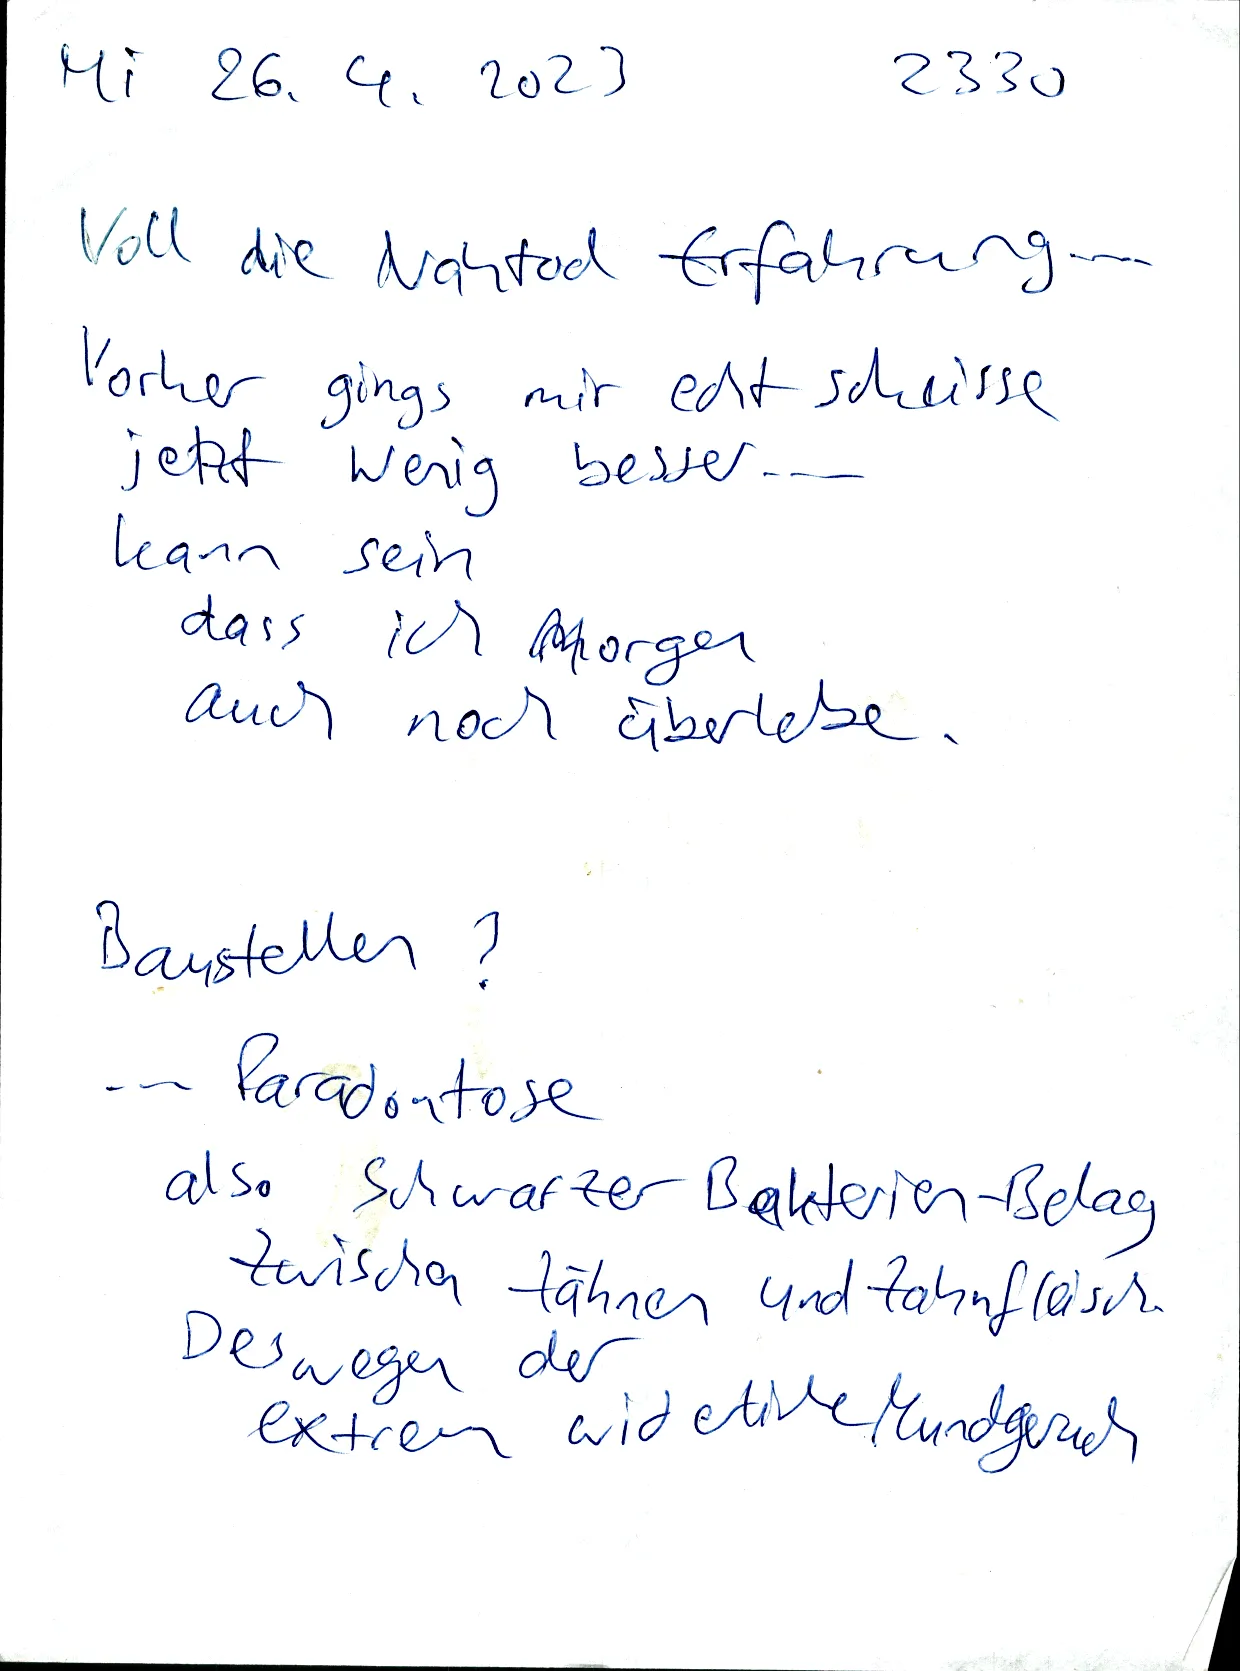 Mi 26. 4. 2023 2330
Voll die Nahtod Erfahrung---
Vorher gings mir echt scheisse
jetzt wenig besser---
kann sein
dass ich Morgen
auch noch überlebe.
Baustellen ?
--- Paradontose
also Schwarzer Bakterien-Belag
zwischen Zähnen und Zahnfleisch.
Deswegen der
extrem Mundgeruch